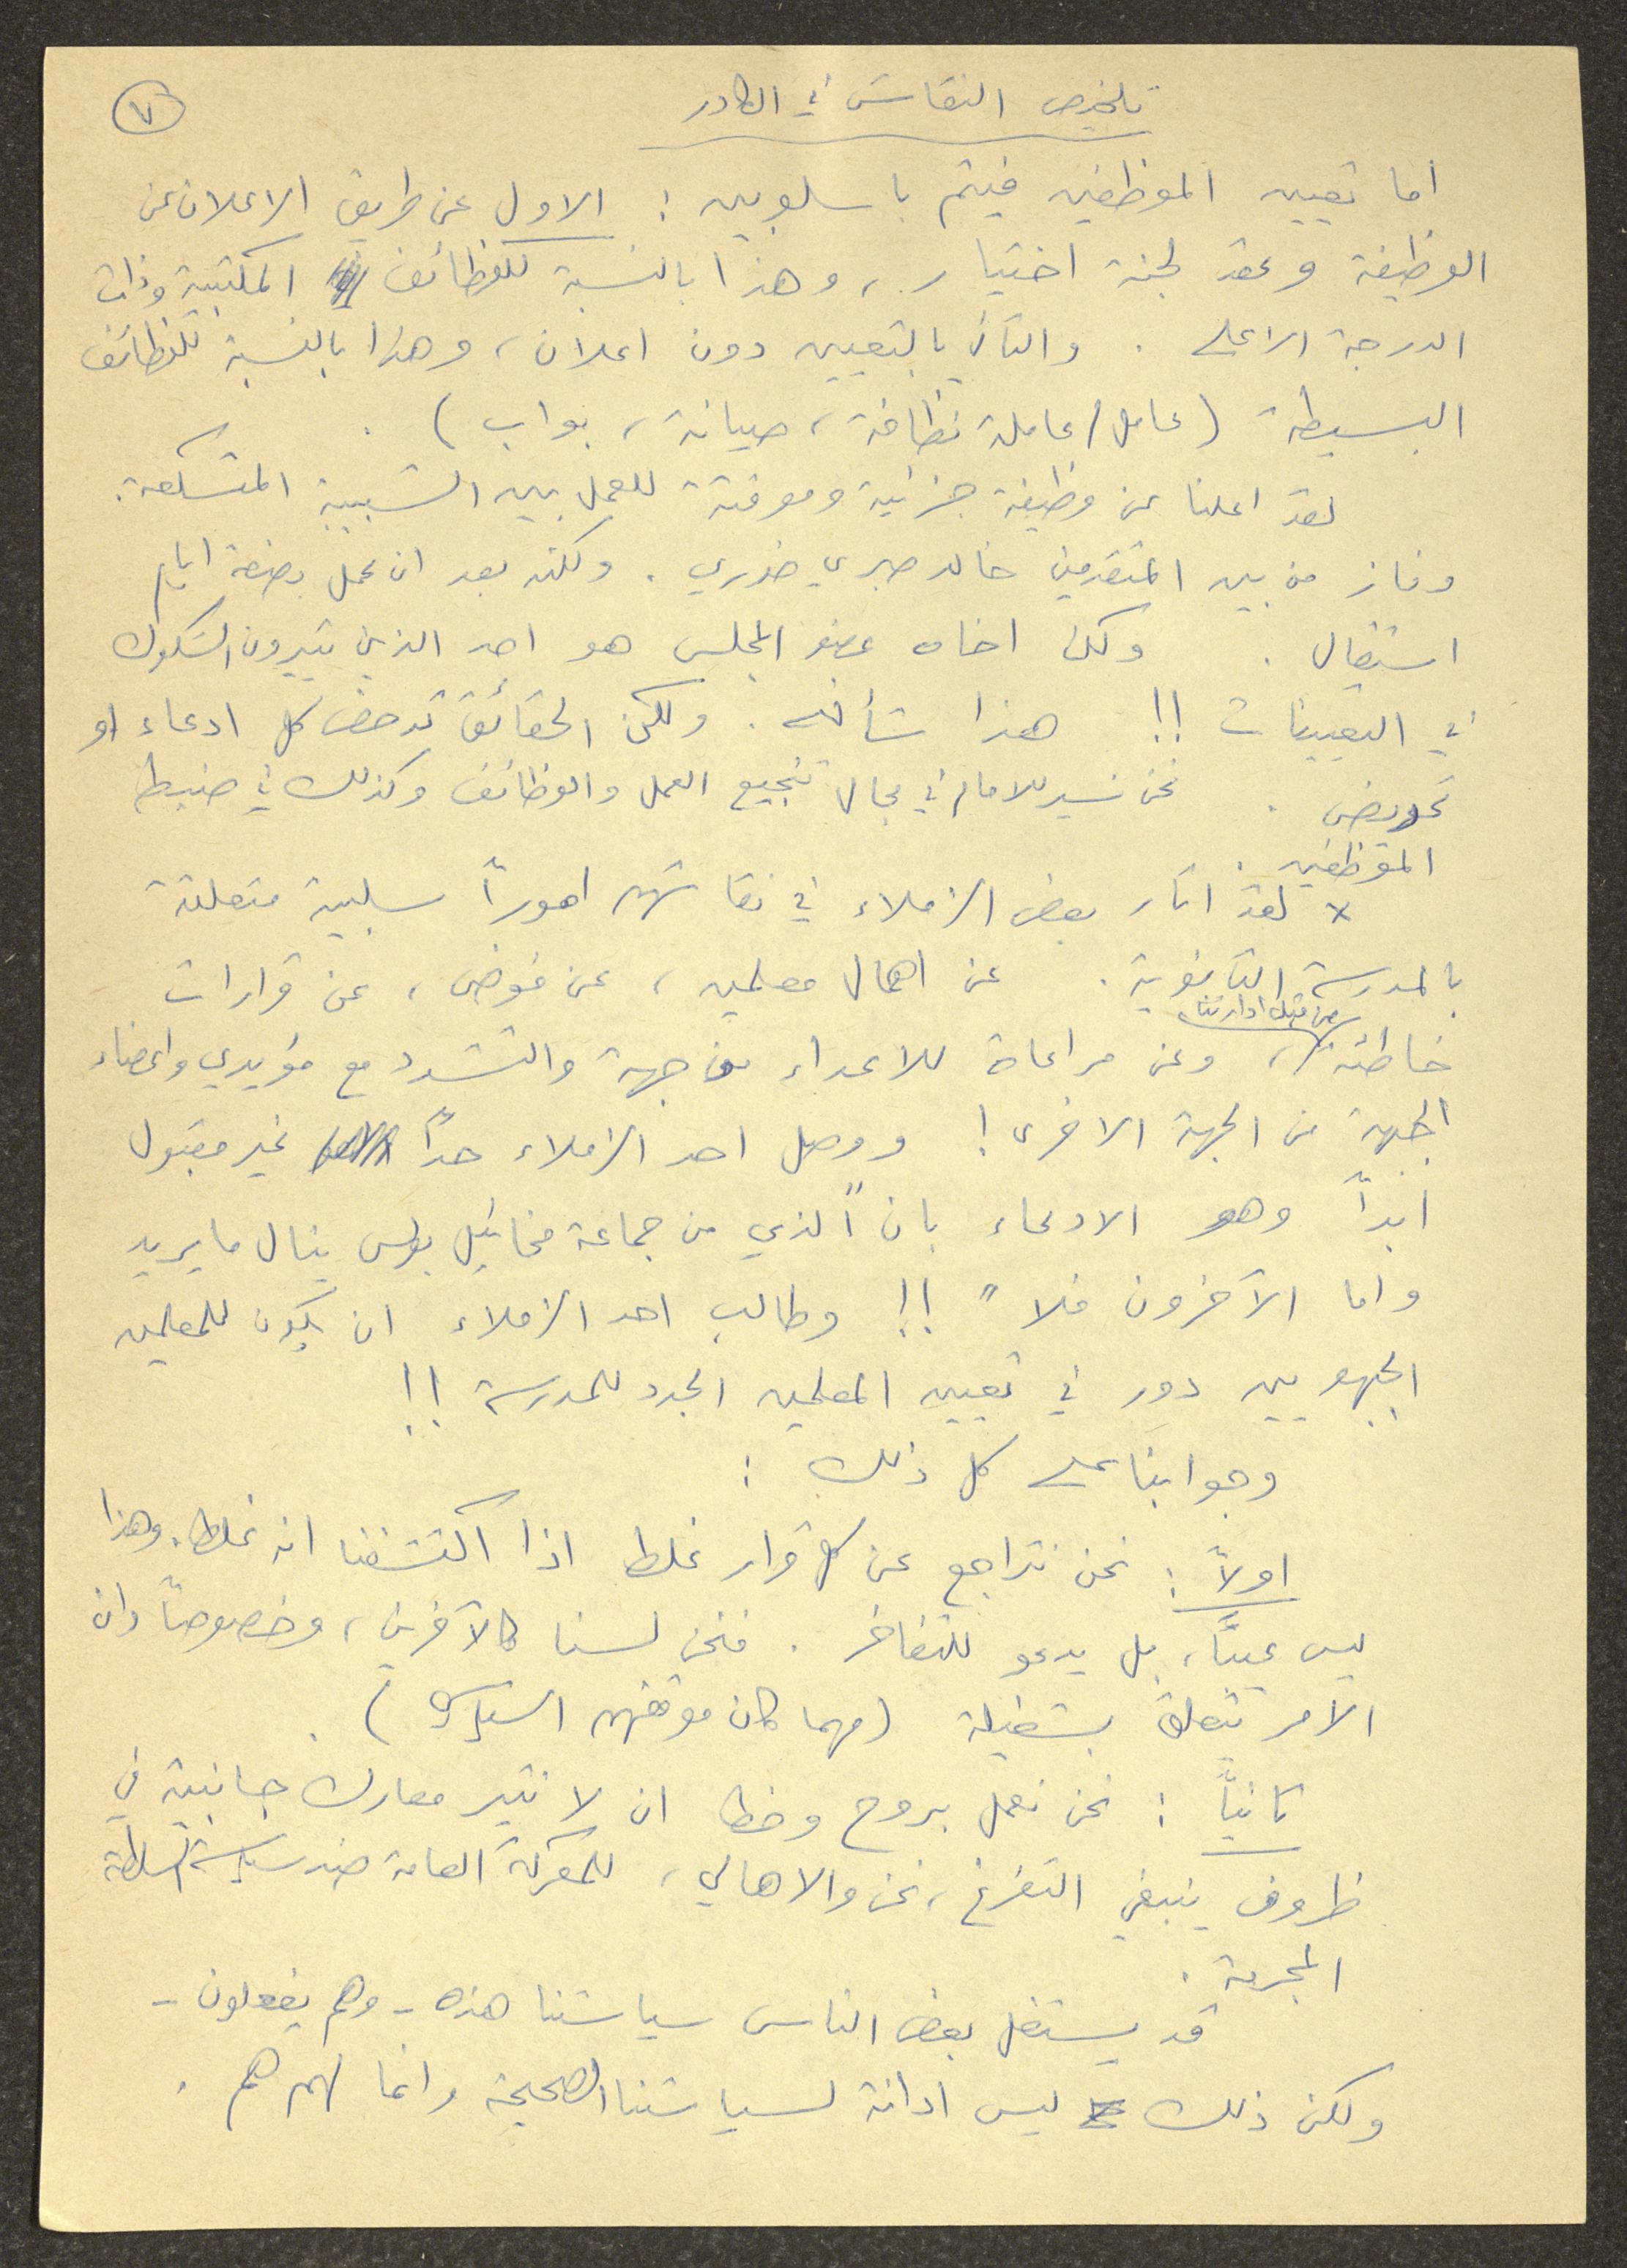 تلخيص النقاش في الكادر
٧
اما تعيين الموظفين فيتم باسلوبين : الاول عن طريق الاعلان عن
الوظيفة وعقد لجنة اختيار ، وهذا بالنسبة للوظائف المكتبية وذات
الدرجة الاعلى . والثاني بالتعيين دون اعلان ، وهذا بالنسبة للوظائف
البسيطة ( عامل / عاملة نظافة ، صيانة ، بواب ) .
لقد اعلنا عن وظيفة جزئية ومؤقتة للعمل بين الشبيبة المتسكعة .
وفاز من بين المتقدمين خالد صبري خوري . ولكنه بعد ان عمل بضعة ايام
استقال . ولكن اخاه عضو المجلس هو احد الذين يثيرون الشكوك
في التعيينات !! هذا شأنه . ولكن الحقائق تدحض كل ادعاء او
تحريض . نحن نسير للامام في مجال تنجيع العمل والوظائف وكذلك في ضبط
الموظفين .
x لقد اثار بعض الزملاء في نقاشهم اموراً سلبية متعلقة
بالمدرسة الثانوية . عن اهمال معلمين ، عن فوضى ، عن قرارات
من قبل ادارتنا
خاطئة ، وعن مراعاة للاعداء من جهة والتشدد مع مؤيدي واعضاء
الجبهة من الجهة الاخرى ! ووصل احد الزملاء حداً غير مقبول
ابداً وهو الادعاء بان "الذي من جماعة مخائيل بولس ينال ما يريد
واما الآخرون فلا " !! وطالب احد الزملاء ان يكون للمعلمين
الجبهويين دور في تعيين المعلمين الجدد للمدرسة !!
وجوابنا على كل ذلك :
اولاً : نحن نتراجع عن كل قرار غلط اذا اكتشفنا انه غلط . وهذا
ليس عيباً ، بل يدعو للتفاخر . فنحن لسنا كالآخرين ، وخصوصاً وان
الامر يتعلق بشغيلة ( مهما كان موقفهم السياسي ) .
ثانياً : نحن نعمل بروح وخط ان لا نثير معارك جانبية في
ظروف ينبغي التفرغ ، نحن والاهالي ، للمعركة العامة ضد سياسة السلطة
المجرمة .
قد يستغل بعض الناس سياستنا هذه - وهم يفعلون -
ولكن ذلك ليس ادانة لسياستنا الصحيحة وانما لهم هم .